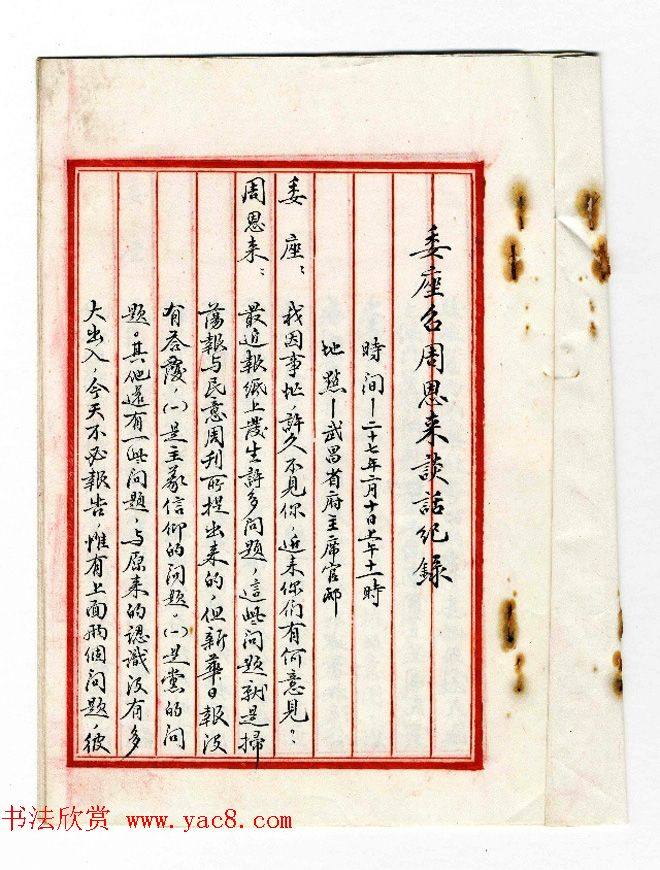 委座召周恩来談話紀錄
時間—二十七年二月十日上午十一時
地點—武昌省府主席官邸
委座：我因事忙，許久不見你，近来你们有何意見？
周恩来：最近報紙上發生許多问题，這些问题就是掃
蕩報与民意周刊所提出来的，但新華日報没
有答覆，(一)是主義信仰的问题，(一)是党的问
题。其他還有一些问题，与原来的認識没有多
大出入，今天不必報告，惟有上面兩個问题，彼
书法欣赏 www.yac8.com